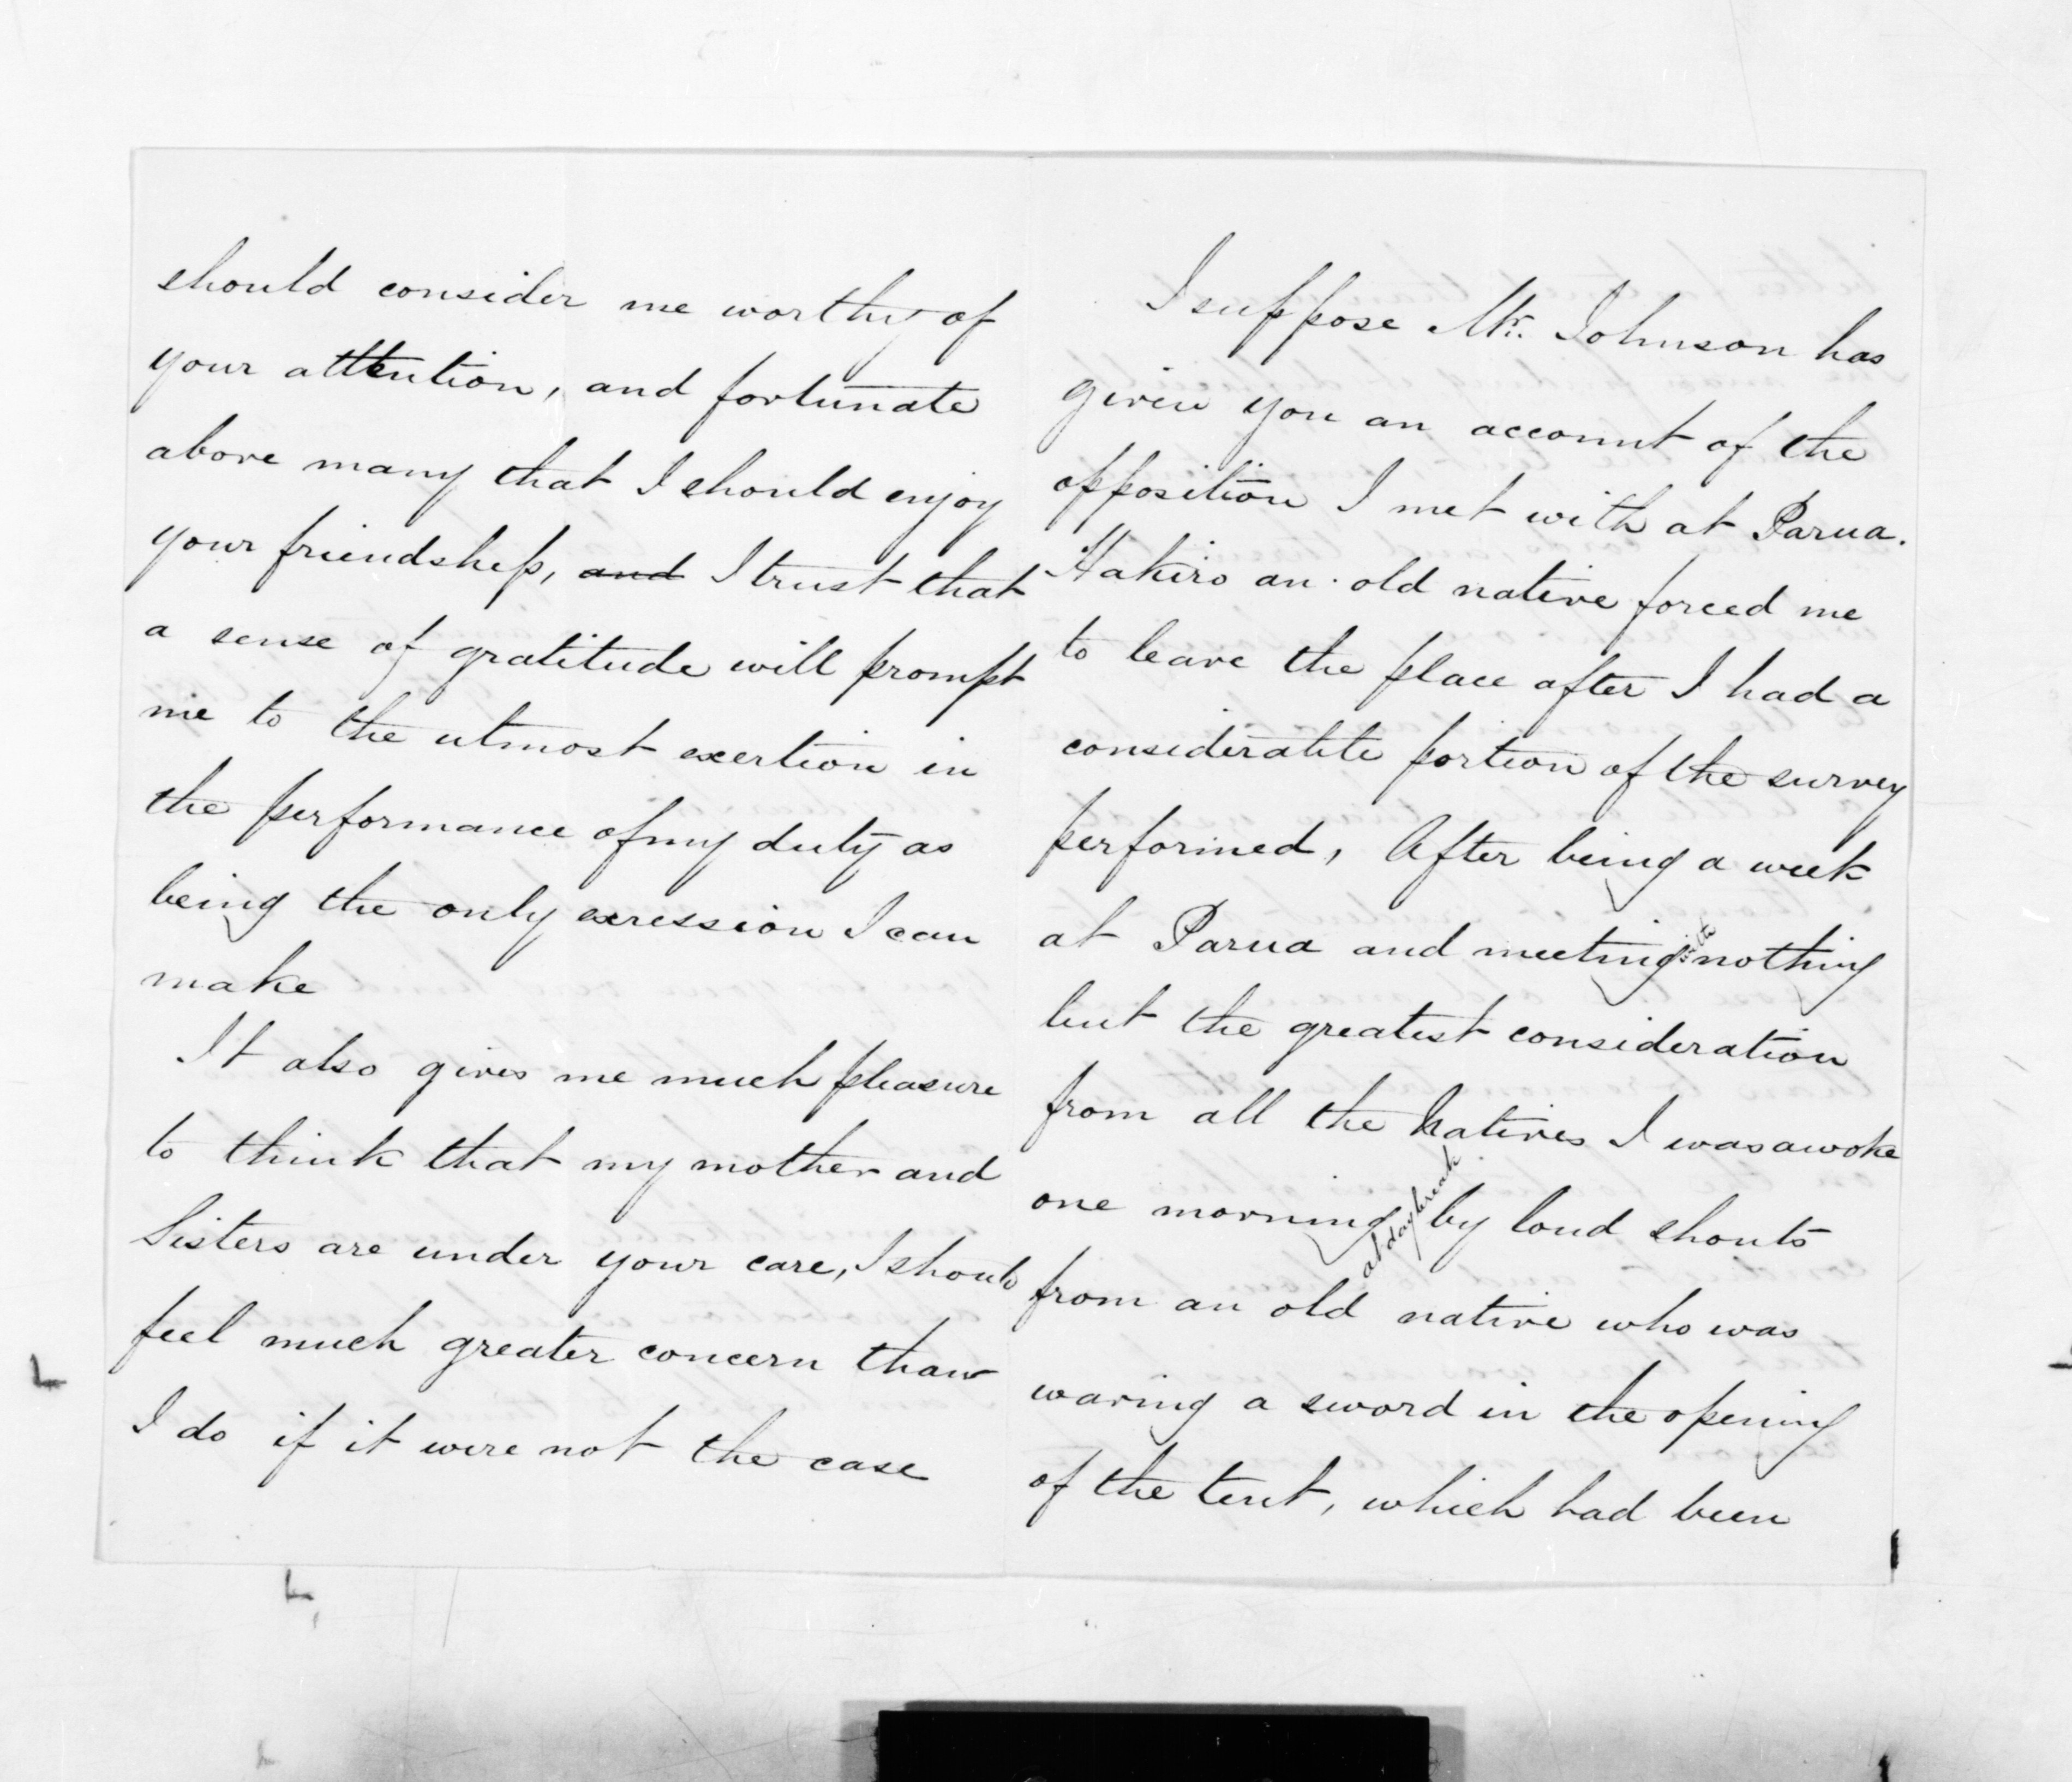 should consider me worthy of
your attention, and fortunate
above many that I should enjoy
your friendship, and I trust that
a sense of gratitude will prompt
me to the utmost exertion in
the performance of my duty as
being the only exression I can
make
It also gives me much pleasure
to think that my mother and
Sisters are under your care, I should
feel much greater concern than
I do if it were not the case
I suppose Mr. Johnson has
given you an account of the
opposition I met with at Parua.
Hakiro an old native forced me
to leave the place after I had a
considerable portion of the survey
performed, After being a week
at Parua and meeting with nothing
but the greatest consideration
from all the Natives I was awoke
one morning at daybreak by loud shouts
from an old native who was
waving a sword in the opening
of the tent, which had been